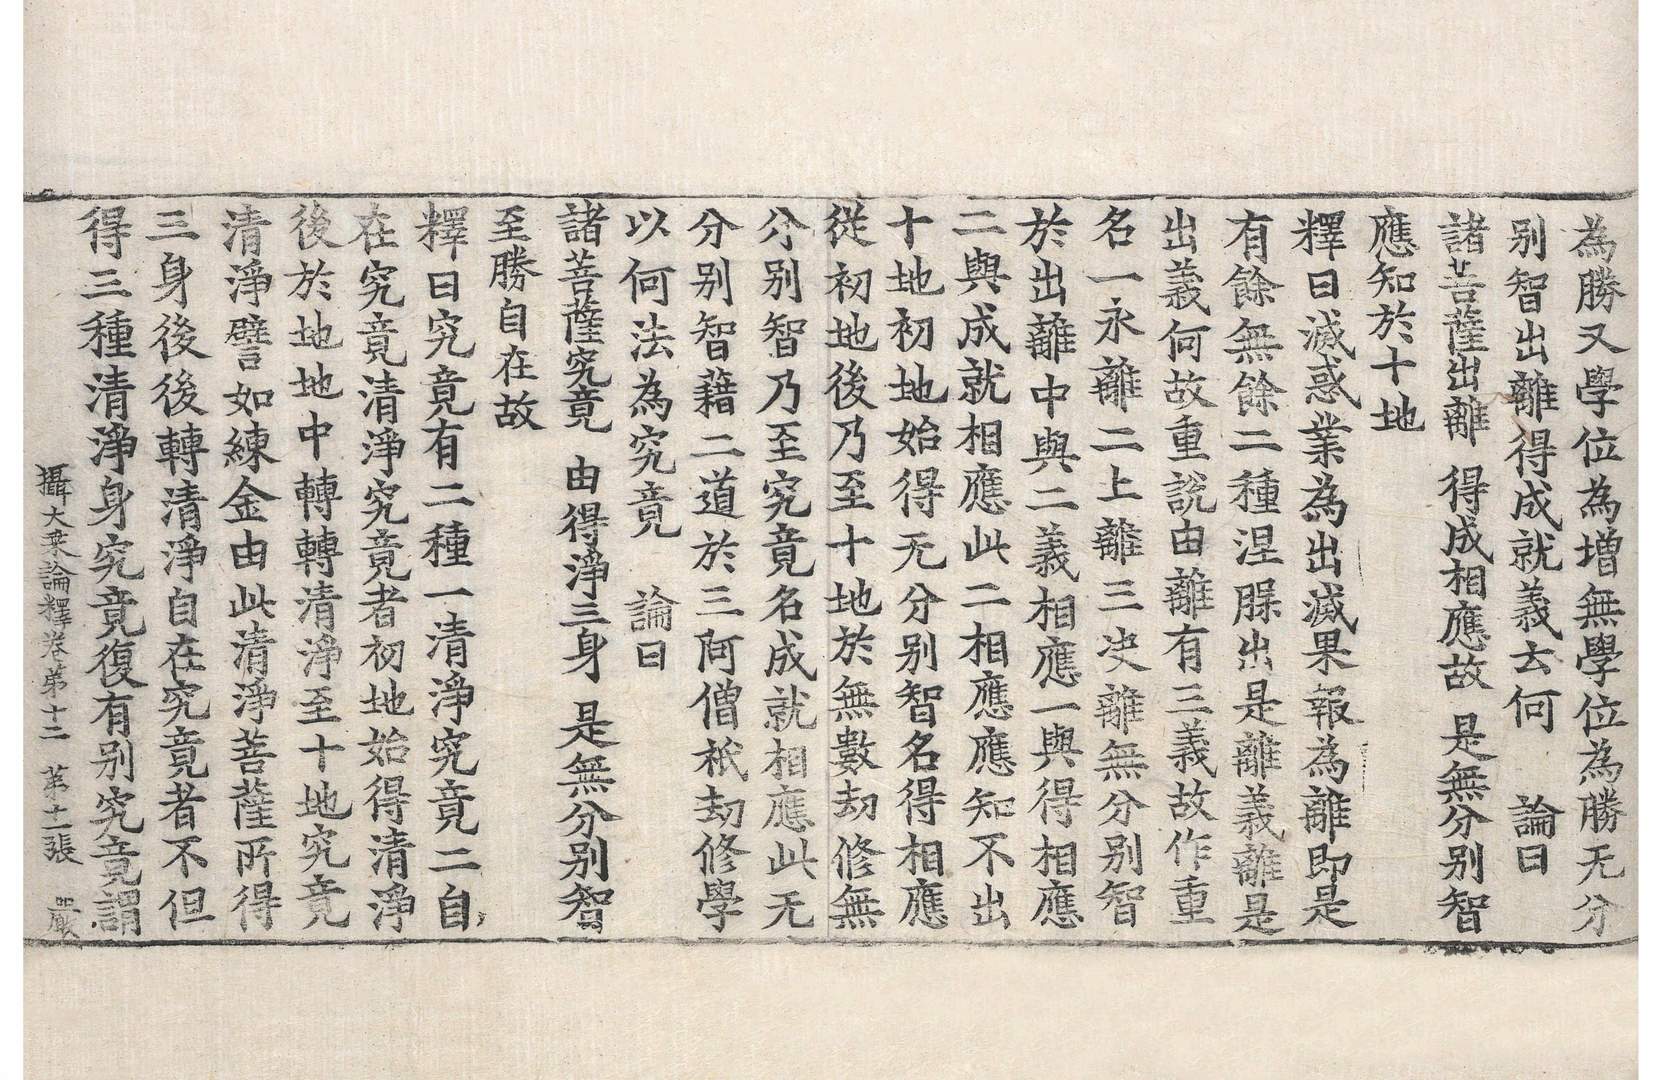 為勝又學位為增無學位為勝无分
别智出離得成就義云何　論曰
諸菩薩出離　得成相應故　是無分别智
應知於十地
釋曰滅惑業為出滅果報為離即是
有餘無餘二種涅槃出是離義離是
出義何故重說由離有三義故作重
名一永離二上離三决離無分别智
於出離中與二義相應一與得相應
二與成就相應此二相應應知不出
十地初地始得无分别智名得相應
從初地後乃至十地於無數劫修無
分别智乃至究竟名成就相應此无
分别智藉二道於三阿僧祇劫修學
以何法為究竟　論曰
諸菩薩究竟　由得淨三身　是無分别智
至勝自在故
釋曰究竟有二種一清淨究竟二自
在究竟清淨究竟者初地始得清淨
後於地地中轉轉清淨至十地究竟
清淨譬如練金由此清淨菩薩所得
三身後後轉清淨自在究竟者不但
得三種清淨身究竟復有别究竟謂
攝大乘論釋卷第十二　第十一張　嚴